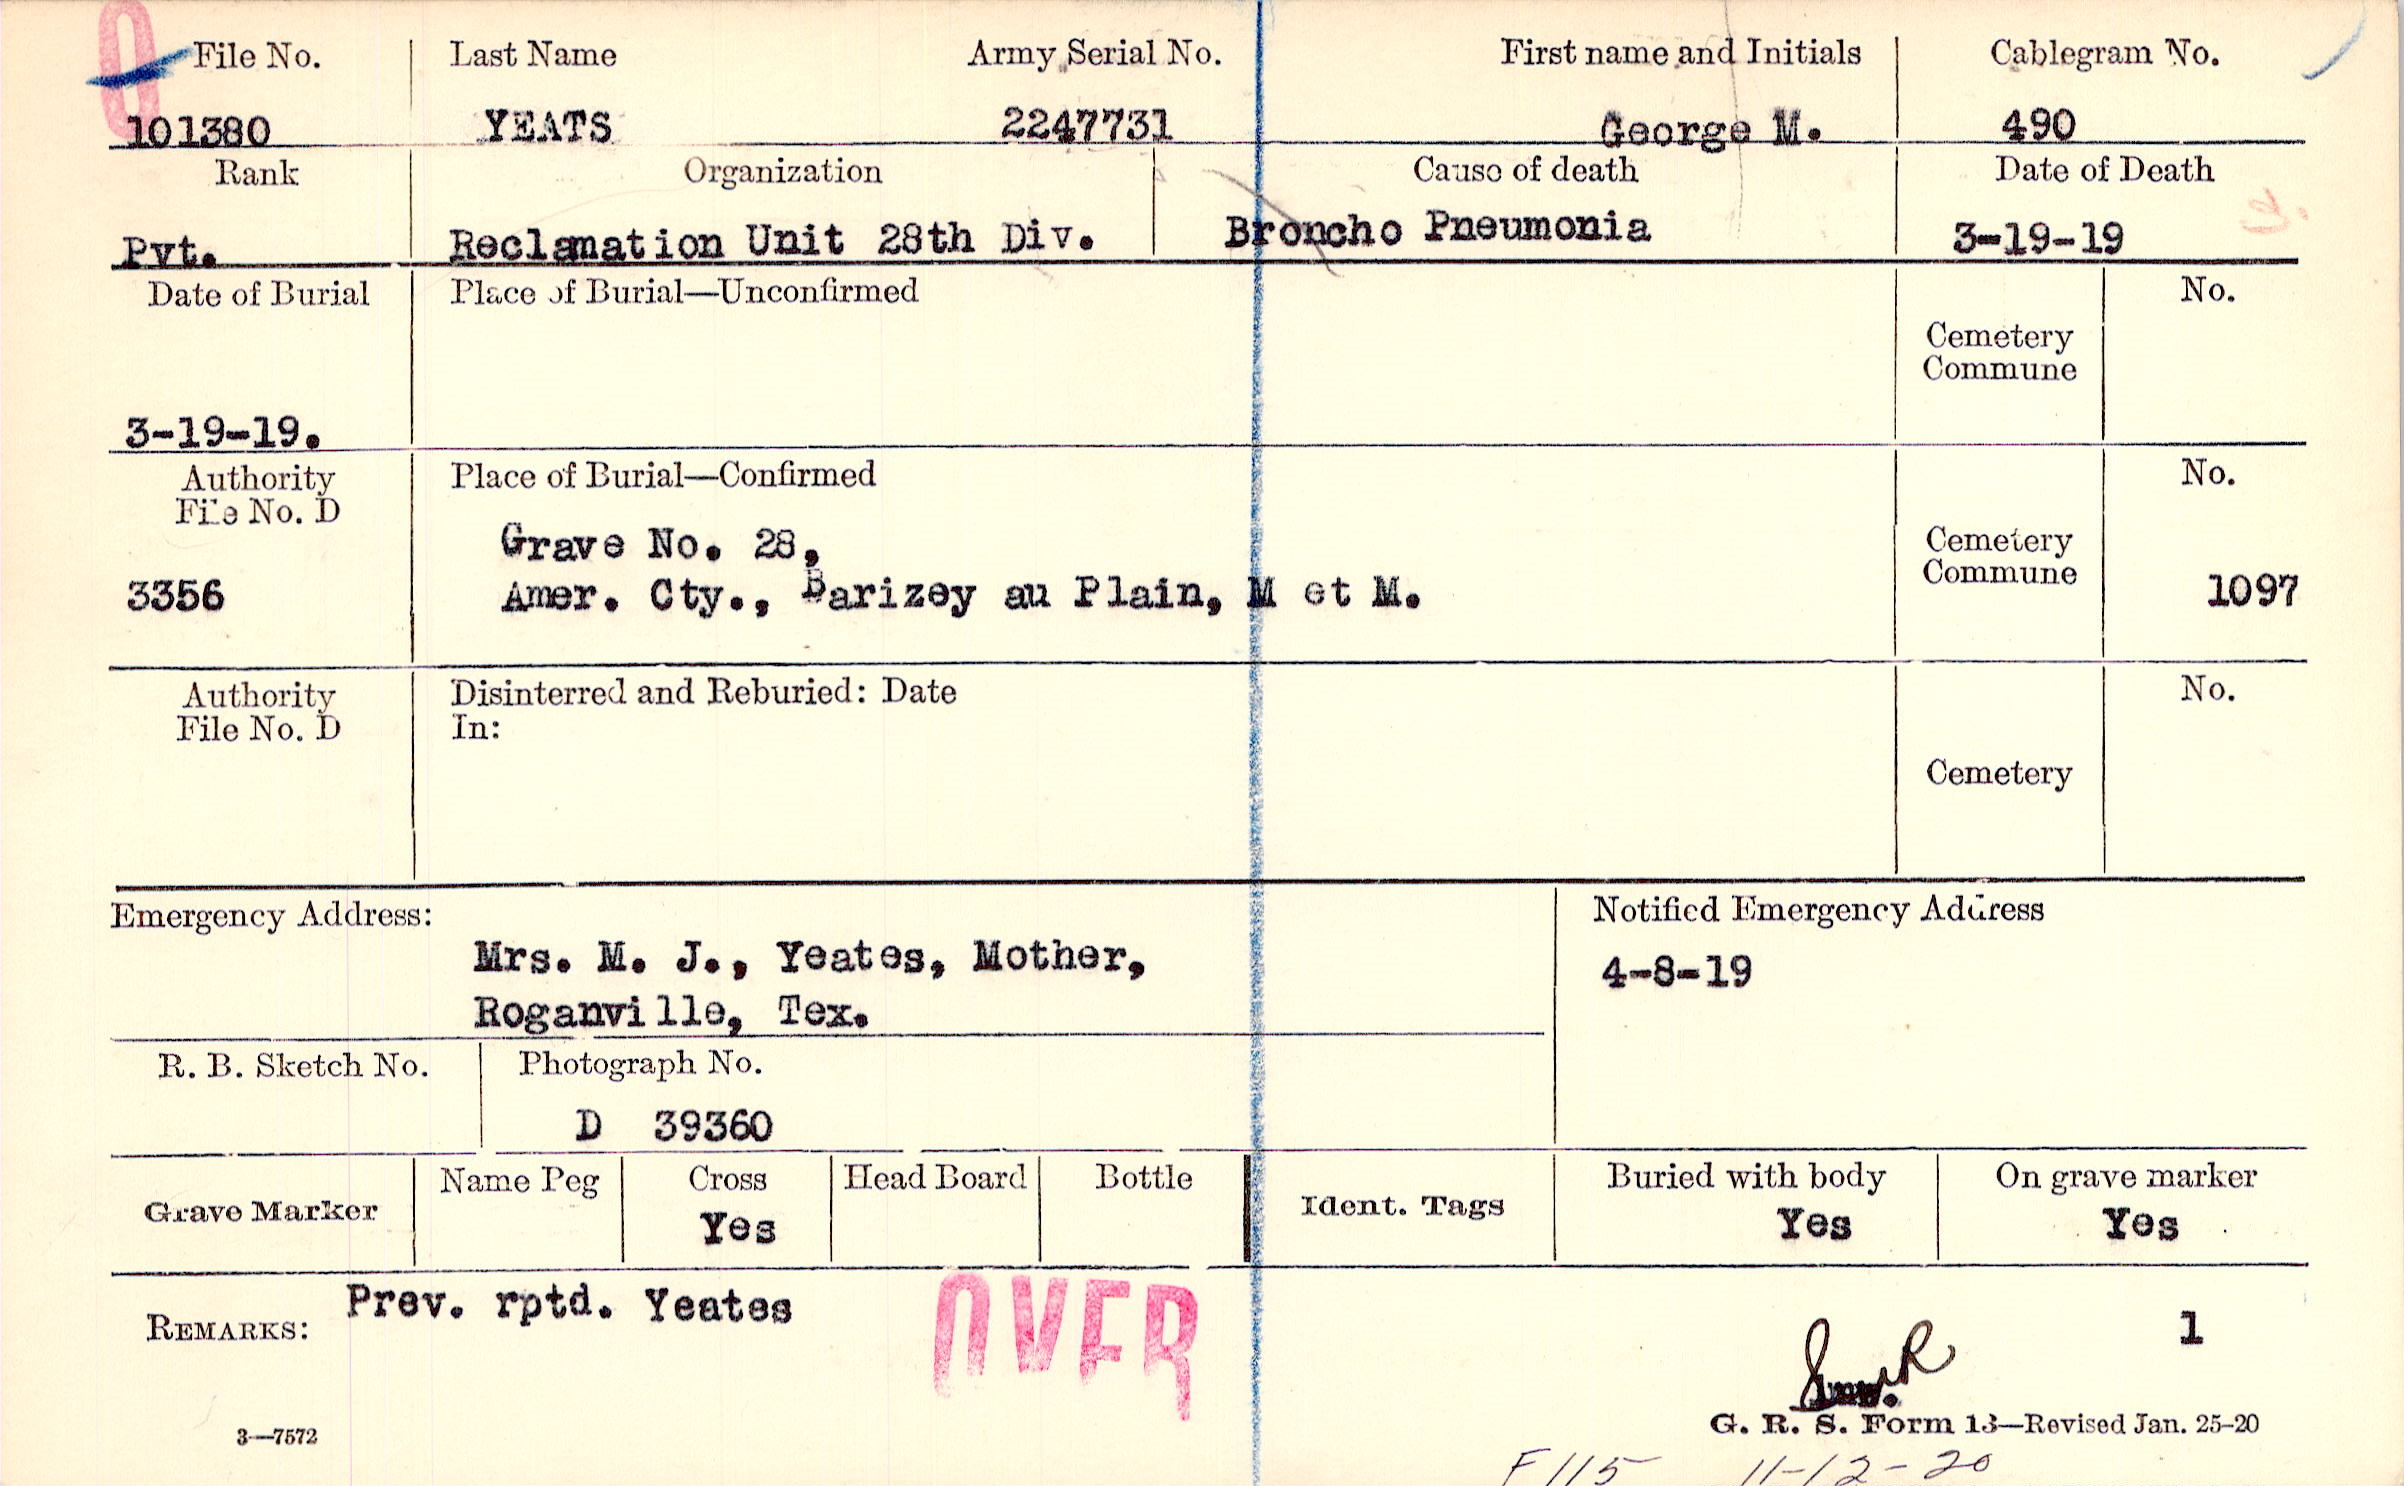 File No. Last Name Army Serial No. First name and Initials Cablegram No.
101380 YEATS 2247731 George M. 490
Rank Organization Cause of death Date of Death
Pvt. Reclamation Unit 28th Div. Broncho Pneumonia 3-19-19
Date of Burial Place of Burial—Unconfirmed No.
Cemetery
Commune
3-19-19.
Authority Place of Burial—Confirmed No.
File No. D
Grave No. 28, Cemetery
Commune
3356 Amer. Cty., Barizey au Plain, M et M. 1097
Authority Disinterred and Reburied: Date No.
File No. D In:
Cemetery
Emergency Address: Notified Emergency Address
Mrs. M. J., Yeates, Mother, 4-8-19
Roganville, Tex.
R. B. Sketch No. Photograph No.
D 39360
Name Peg Cross Head Board Bottle Buried with body On grave marker
Grave Marker Ident. Tags
Yes Yes Yes
REMARKS: Prev. rptd. Yeates OVER 1
3—7572 G. R. S. Form 13—Revised Jan. 25-20
F115 11-12-20